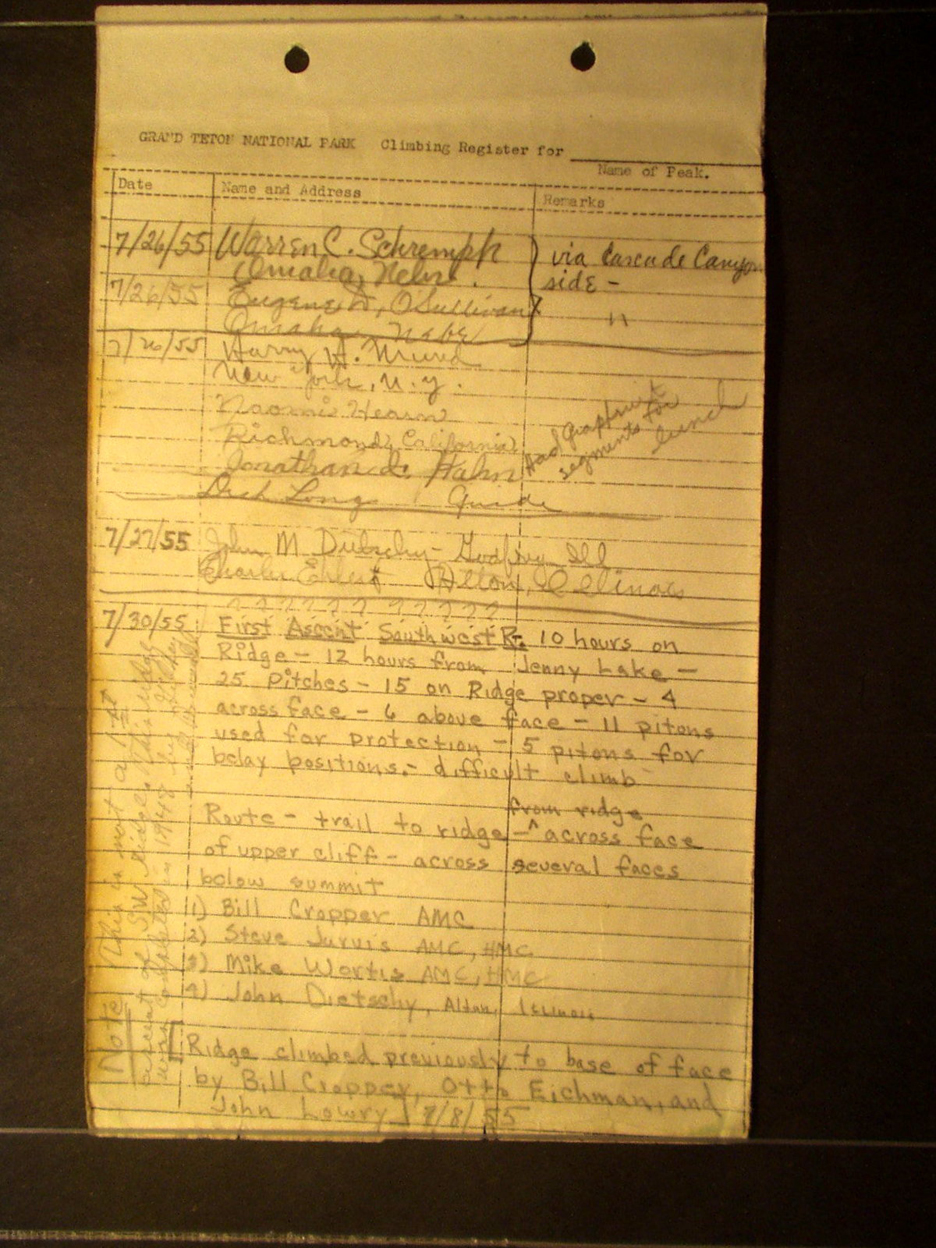 GRAND TETON NATIONAL PARK Climbing Register for
Name of Peak.
Date Name and Address Remarks
7/26/55 Warren C. Schremph via Cascade Canyon
Omaha, Nebr. side -
7/26/55 Eugene O'Sullivan "
Omaha Nebr
7/26/55 Harry
New York, N.Y.
Naomi Hearn
Richmond, California
Had Grapefruit
segments for
lunch
Jonathan Hahn
Dick Long Guide
7/27/55 John M Godfrey Ill
Charles Alton, Illinois
? ? ? ? ? ? ? ? ? ?
7/30/55 First Ascent Southwest R. 10 hours on
Ridge - 12 hours from Jenny Lake -
25 Pitches - 15 on Ridge proper - 4
across face - 6 above face - 11 pitons
used for protection - 5 pitons for
belay positions. - difficult climb
from ridge
Route - trail to ridge - ^ across face
of upper cliff - across several faces
below summit
1) Bill Cropper AMC
2) Steve Jervis AMC, HMC
3) Mike Wortis AMC, HMC
4) John Dietschy, Alton, Illinois
[Ridge climbed previously to base of face
by Bill Cropper, Otto Eichman, and
John Lowry] 7/8/55
Note This is not a 1st
ascent of SW ridge. This ridge
was completed in 1948 by